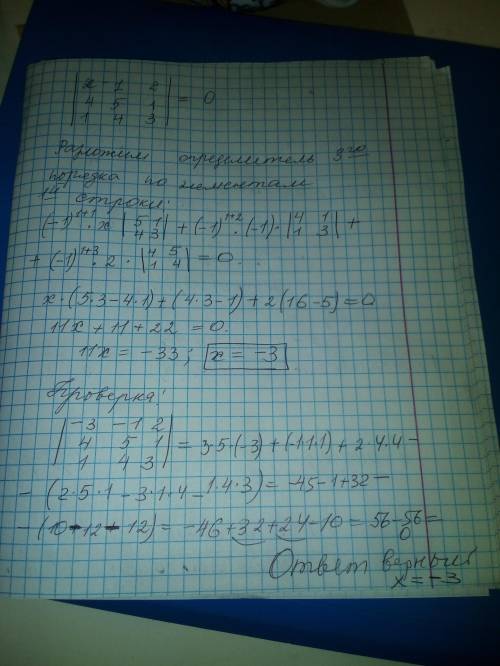 | x -1 2 |
| 4 5 1 | = 0
| 1 4 3 |
Разложим определитель 3го
порядка по элементам
1й строки:
(-1)^{1+1} · x | 5 1 ; 4 3 | + (-1)^{1+2} · (-1) · | 4 1 ; 1 3 | +
+ (-1)^{1+3} · 2 · | 4 5 ; 1 4 | = 0.
x · (5·3 - 4·1) + (4·3 - 1) + 2(16 - 5) = 0
11x + 11 + 22 = 0.
11x = -33; x = -3
Проверка:
| -3 -1 2 |
| 4 5 1 | = 3·5·(-3) + (-1·1·1) + 2·4·4 -
| 1 4 3 |
- (2·5·1 - 3·1·4 - 1·4·3) = -45 - 1 + 32 -
- (10 - 12 - 12) = -46 + 32 + 24 - 10 = 56 - 56 =
0
Ответ верный
x = -3